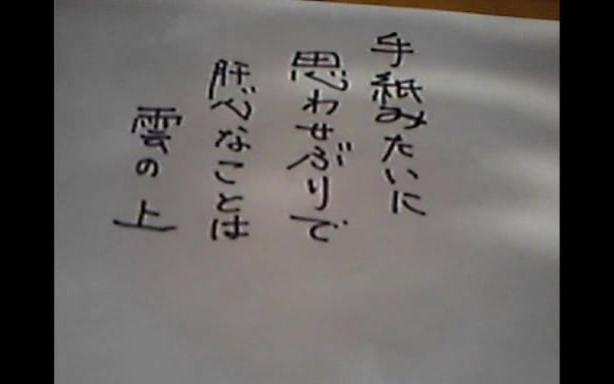 手紙みたいに
思わせぶりで
肝心なことは
雲の上